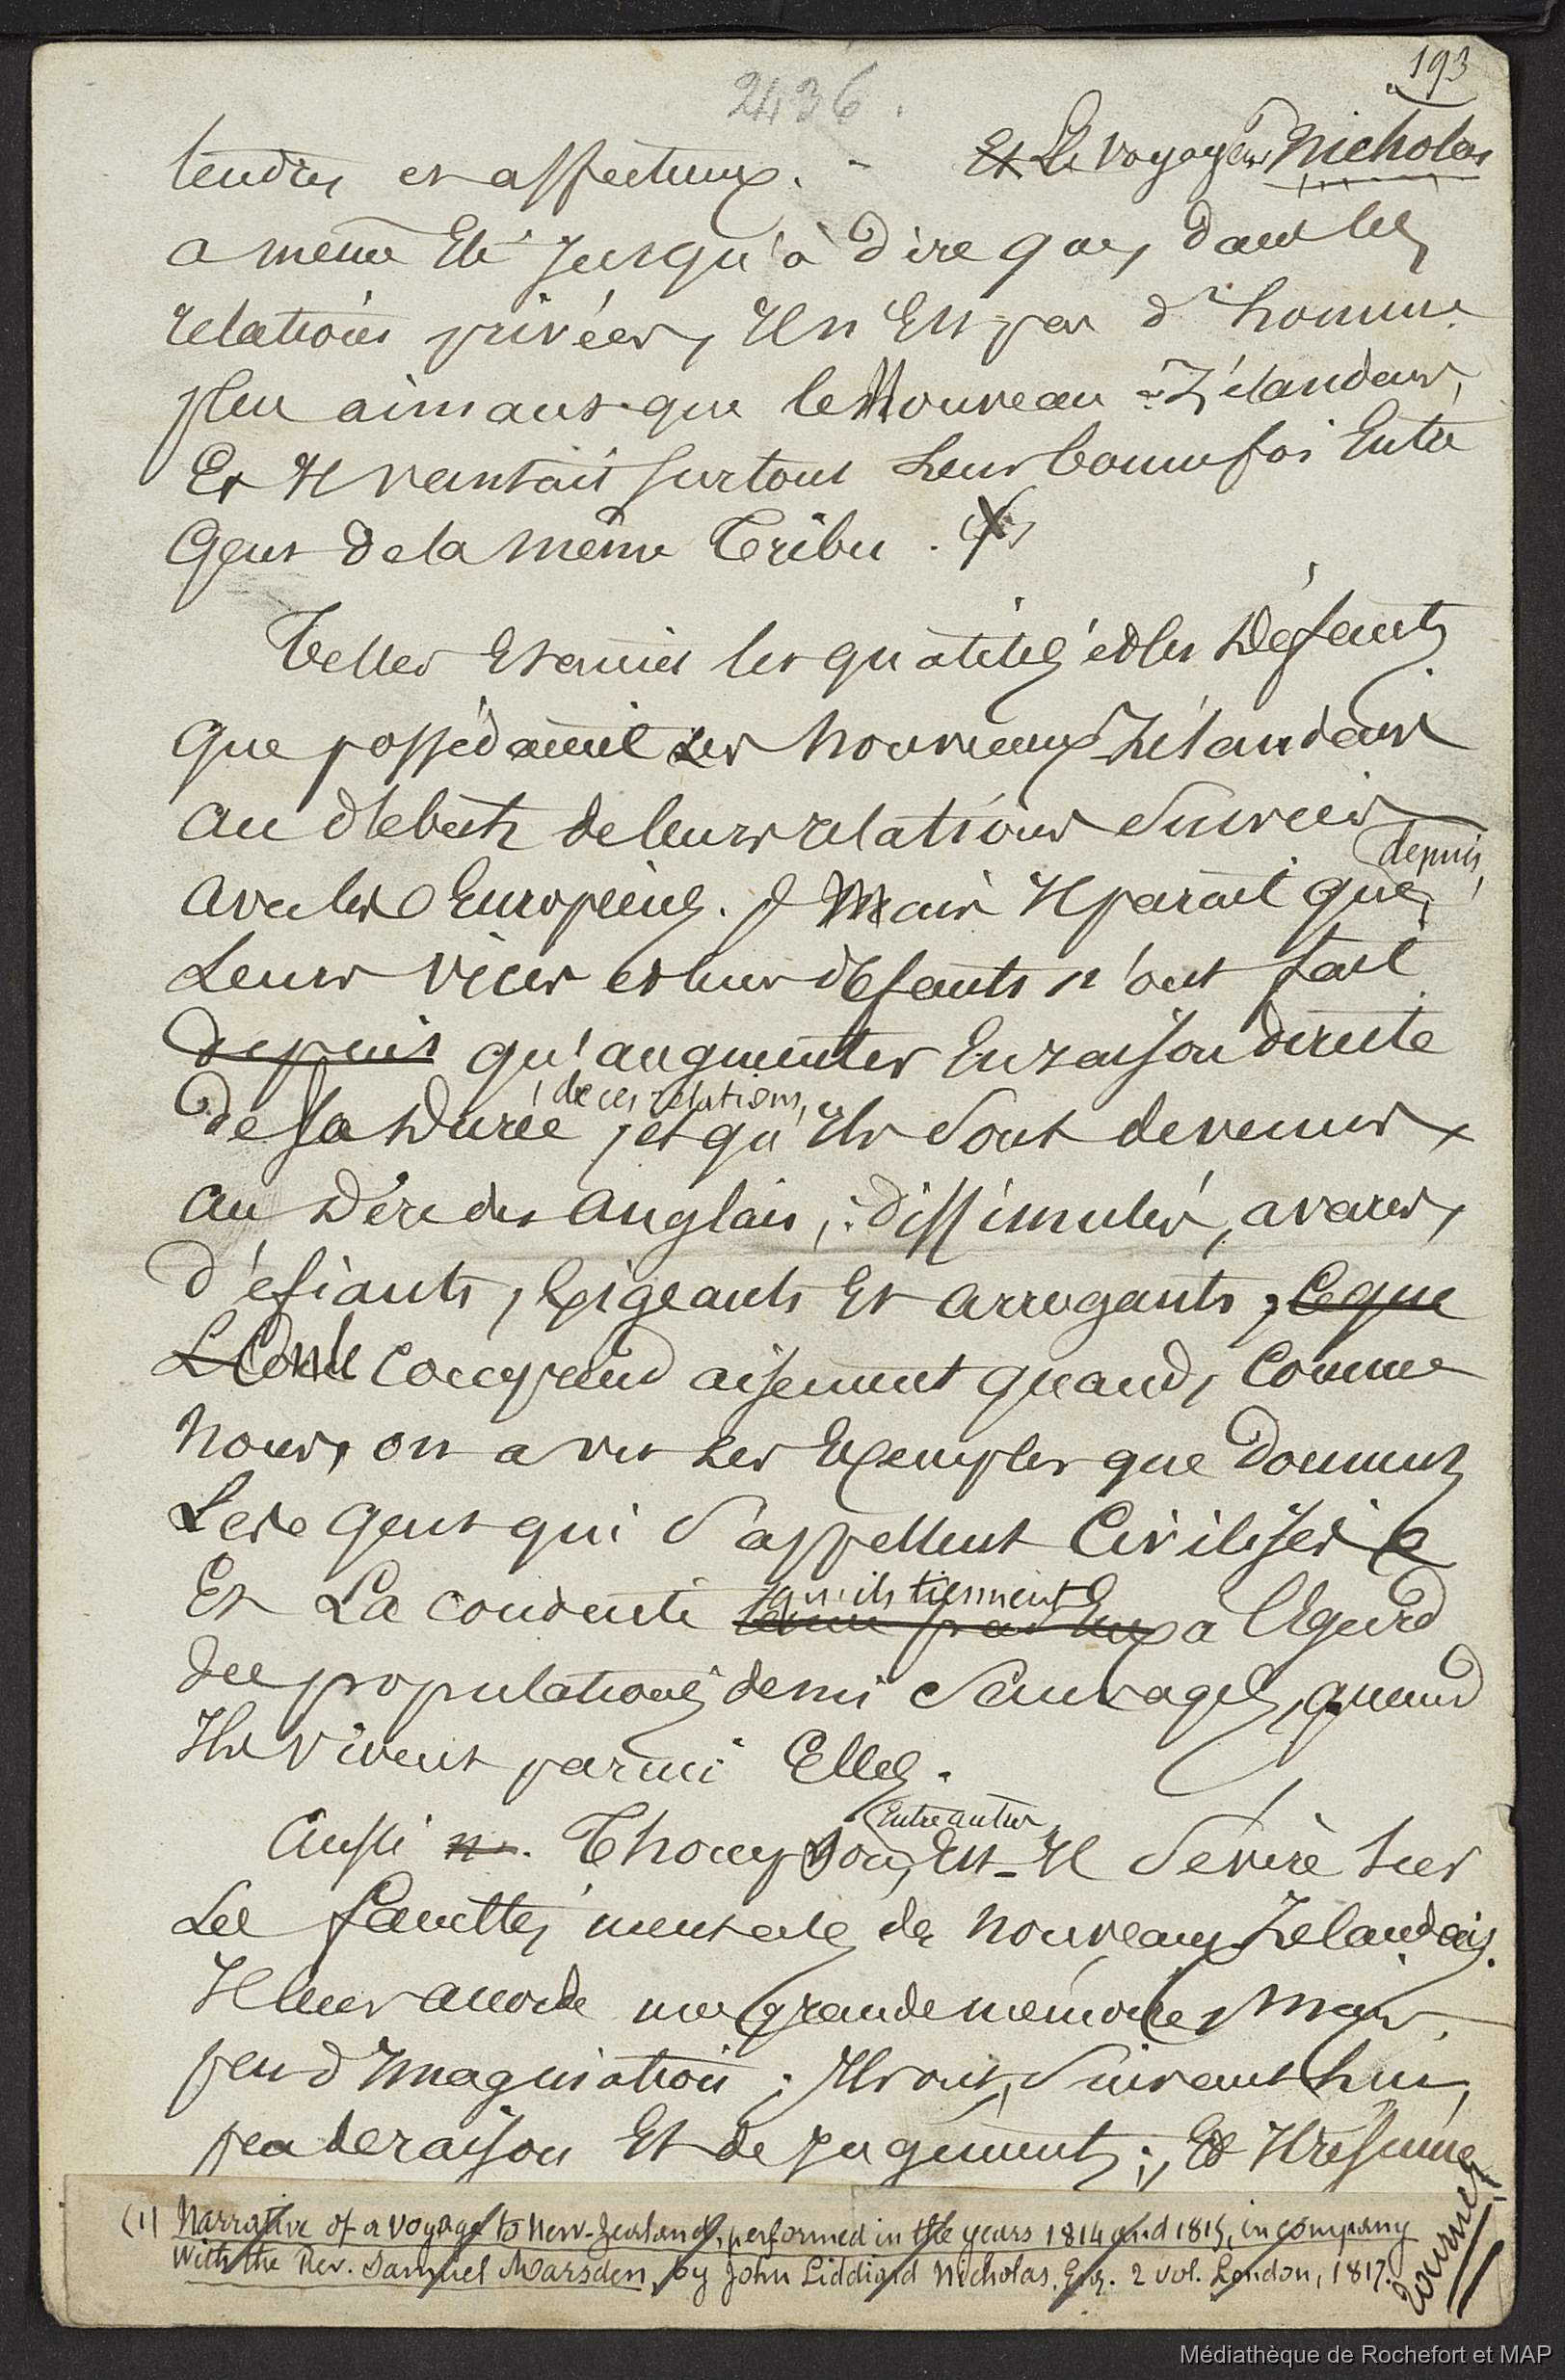 193
2436.
tendres et affectueux. - Et Le voyageur Nicholas
a même été jusqu'à dire que, dans les
relations privées, Il n'Est pas d'homme
plus aimant que le Nouveau-Zélandais,
Et Il vantait surtout Leur bonne foi Entre
Gens de la même Tribu. (X)
Telles Etaient les qualités et les Défauts
que possédaient Les Nouveaux-Zélandais
au début de leurs relations Suivies
depuis,
avec les Européens. Mais Il parait que,
Leurs vices et leurs défauts n'ont fait
depuis qu'augmenter En raison directe
de ces relations,
de la Durée, et qu'Ils Sont devenus,
au Dire des Anglais, dissimulés, avares,
défiants, Exigeants Et arrogants; Ce que
L'on Comprend aisement quand, Comme
Nous, on a vu Les Exemples que Donnent
Les Gens qui S'appellent Civilisés
qu'ils tiennent
Et La conduite tenue par Eux a l'Egard
des populations demi Sauvages, quand
Ils vivent parmi Elles.
Entre autres,
Aussi Thompson, Est-Il Sévère Sur
Les facultés mentales des Nouveaux-Zélandais.
Il leur accorde une grande mémoire, Mais
peu d'Imagination; Ils ont, Suivant Lui,
peu de raison Et de Jugement; Et Il résume
(1) Narrative of a voyage to New-Zealand, performed in the years 1814 and 1815, in company
With the Rev. Samuel Marsden, by John Liddiard Nicholas, Esq. 2 vol. London, 1817.
tournez
Médiathèque de Rochefort et MAP